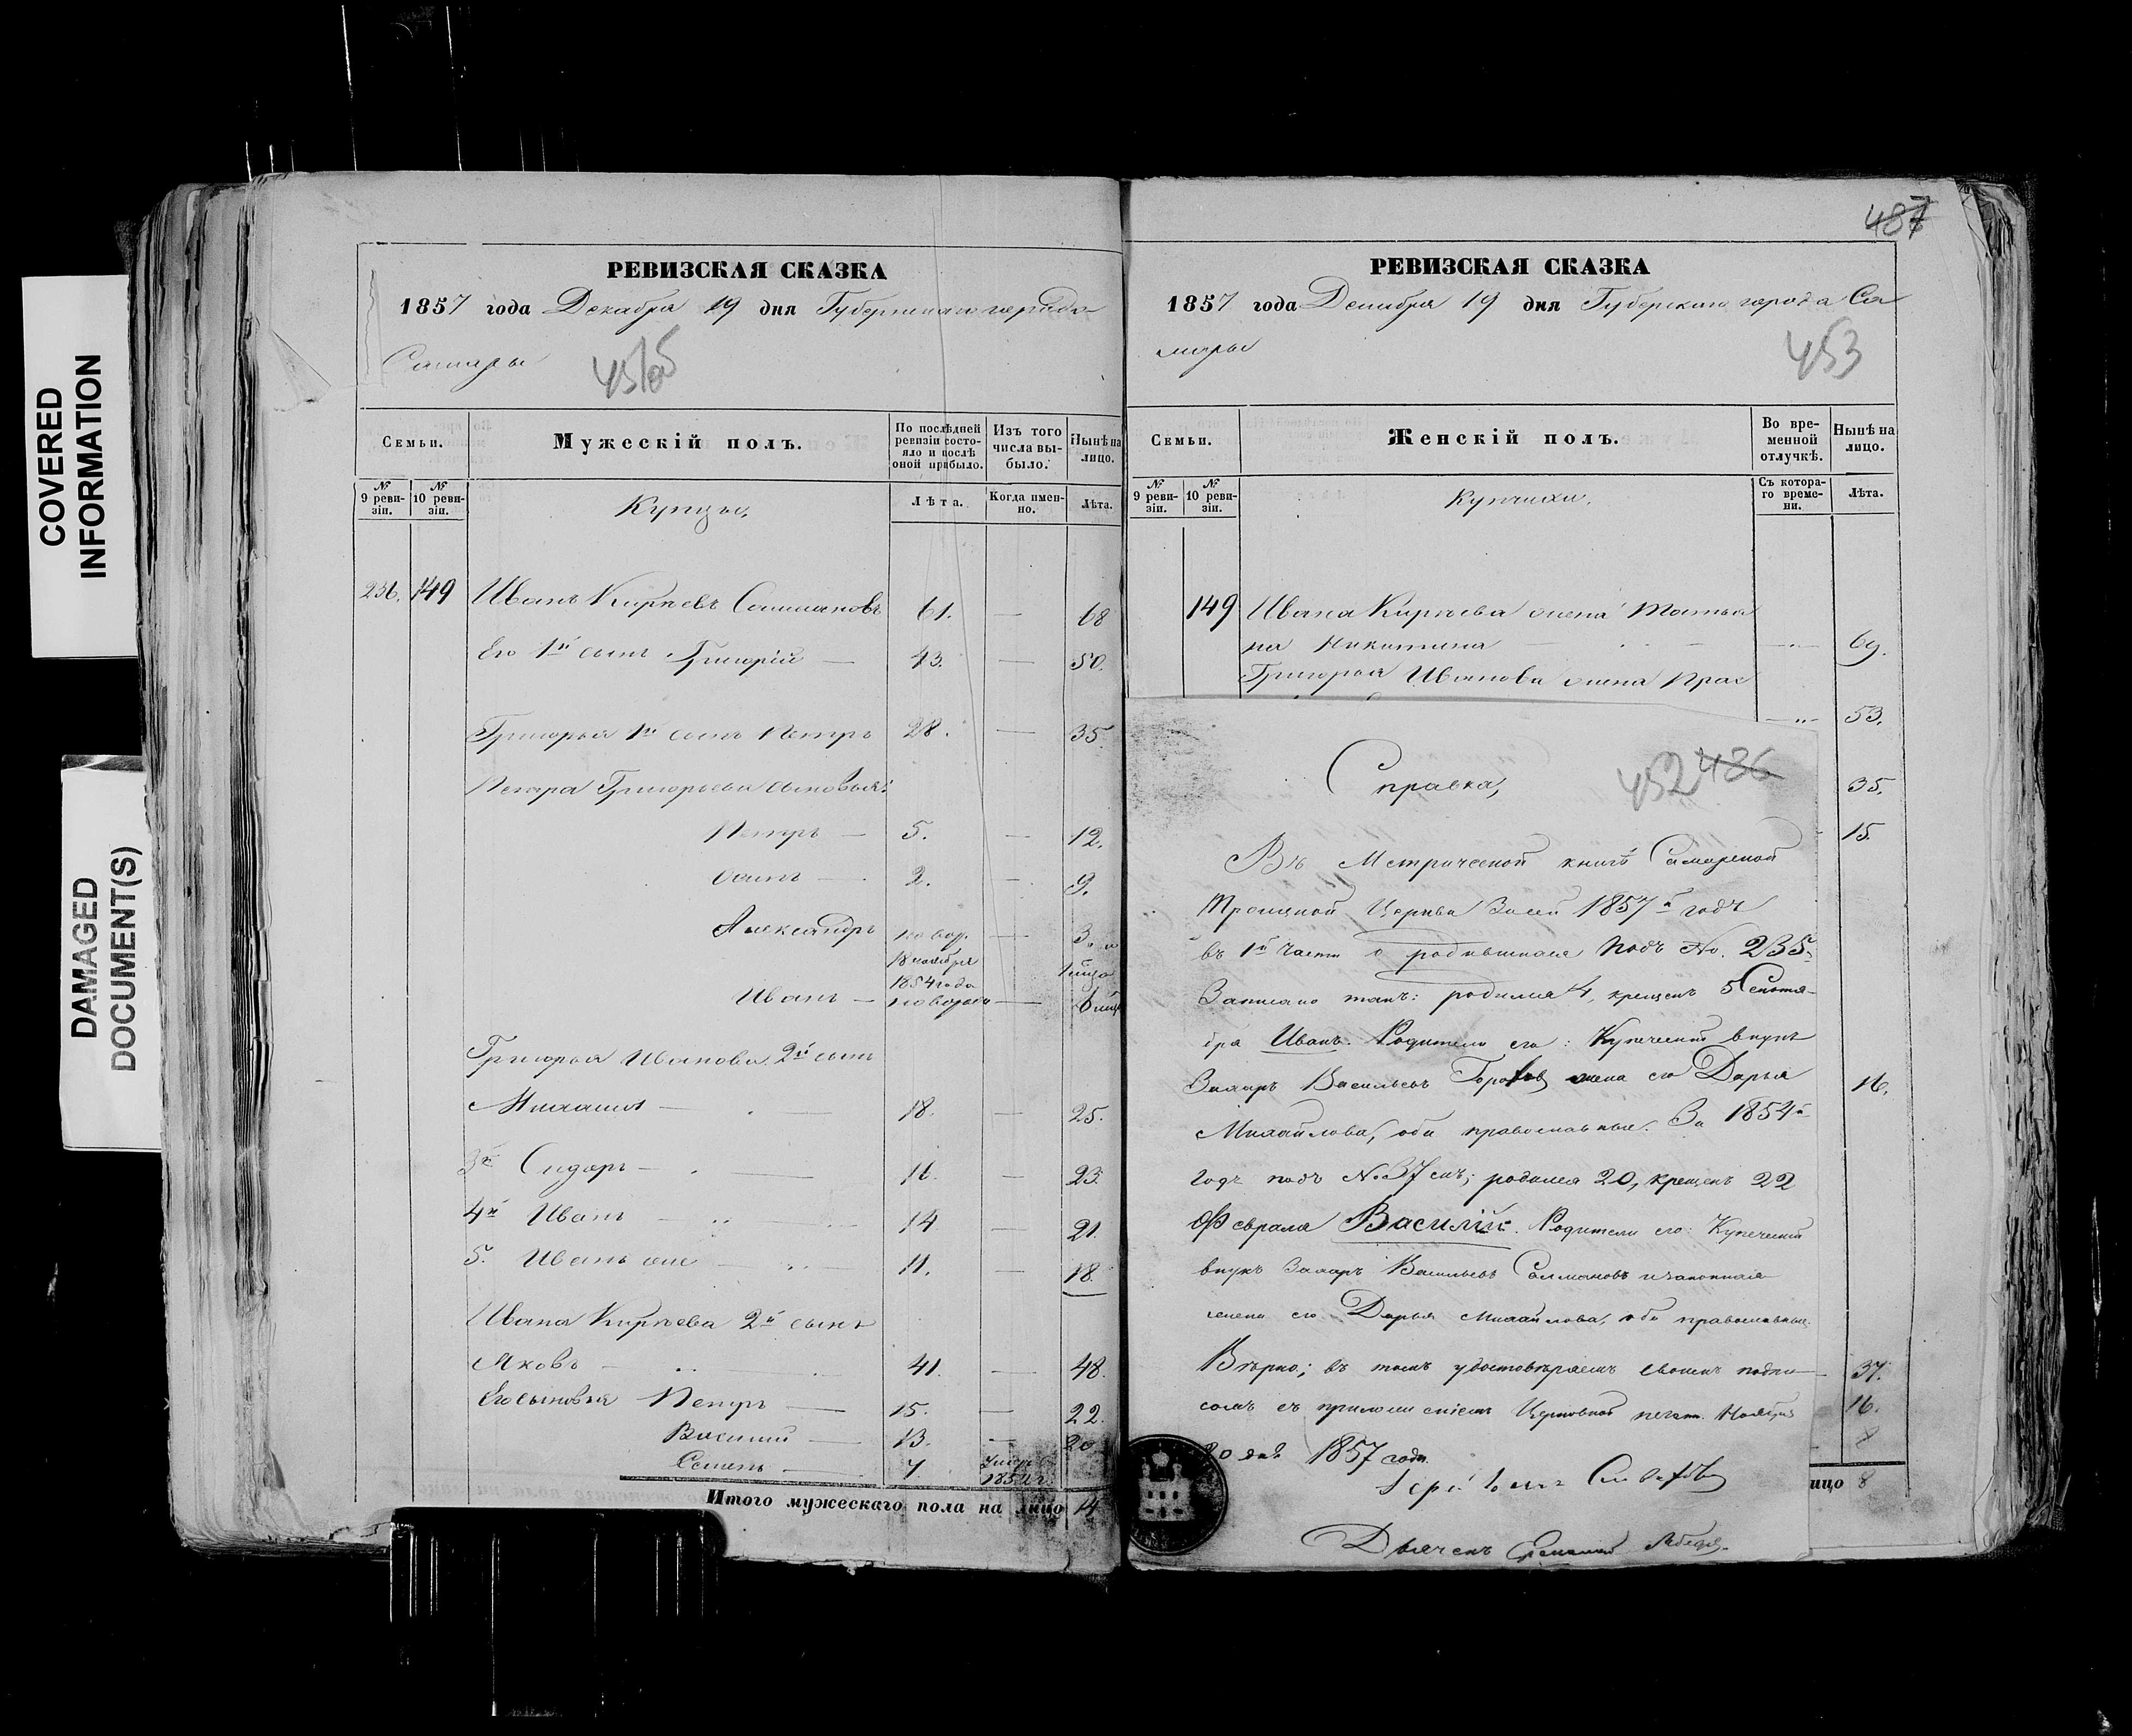 COVERED
INFORMATION
DAMAGED
DOCUMENT(S)
РЕВИЗСКАЯ СКАЗКА
1857 года Декабря 19 дня Губернскаго города
Самары
Семьи.
Мужескій полъ.
По послѣдней ревизіи состояло и послѣ оной прибыло.
Изъ того числа выбыло.
Нынѣ на лицо.
№ 9 ревизіи.
№ 10 ревизіи.
Купцы.
Лѣта.
Когда именно.
Лѣта.
236. 149 Иванъ Кирѣевъ 61. — 68
Его 1й сынъ Григорій — 43. — 50.
Григорья 1й сынъ Петръ 28. — 35.
Петра Григорьева сыновья:
Петръ — 5. — 12.
Осипъ — 2. — 9.
Александръ новор. — 3.
18 ноября
1854 года
Иванъ — — 6
Григорья Иванова 2й сынъ
Михаилъ — 18. — 25.
3й Сидоръ — 16. — 23.
4й Иванъ 14 — 21.
5. Иванъ же 11. — 18.
Ивана Кирѣева 2й сынъ
Яковъ — 41. — 48.
Его сыновья Петръ — 15. — 22.
Василій — 13. — 20
Семенъ — 7. 1854 г.
Итого мужескаго пола на лицо 14
487
РЕВИЗСКАЯ СКАЗКА
1857 года Декабря 19 дня Губернскаго города Са
мары
453
Семьи.
Женскій полъ.
Во временной отлучкѣ.
Нынѣ на лицо.
№ 9 ревизіи.
№ 10 ревизіи.
Купчихи.
Съ котораго времени.
Лѣта.
149 Ивана Кирѣева жена Татья
на Никитина — 69.
Григорья Иванова жена Прас
53.
35.
15.
16.
37.
16.
лицо 8
Справка,
452 486
Въ Метрической книгѣ Самарской
Троицкой Церкви за сей 1857й годъ
въ 1й части о родившихся подъ No. 235
Записано такъ: родился 4, крещенъ 5 Сентя-
бря Иванъ. Родители его: Купеческій внукъ
Захаръ Васильевъ жена его Дарья
Михайлова, оба православные. За 1854й
годъ подъ N. 37 родился 20, крещенъ 22
Февраля Василій. Родители его: Купеческій
внукъ Захаръ Васильевъ Салмановъ и законная
жена его Дарья Михайлова, оба православные.
Вѣрно; въ томъ удостовѣряемъ своимъ подпи-
сомъ съ приложеніемъ Церковной печати. Ноября
20 дня 1857 года.